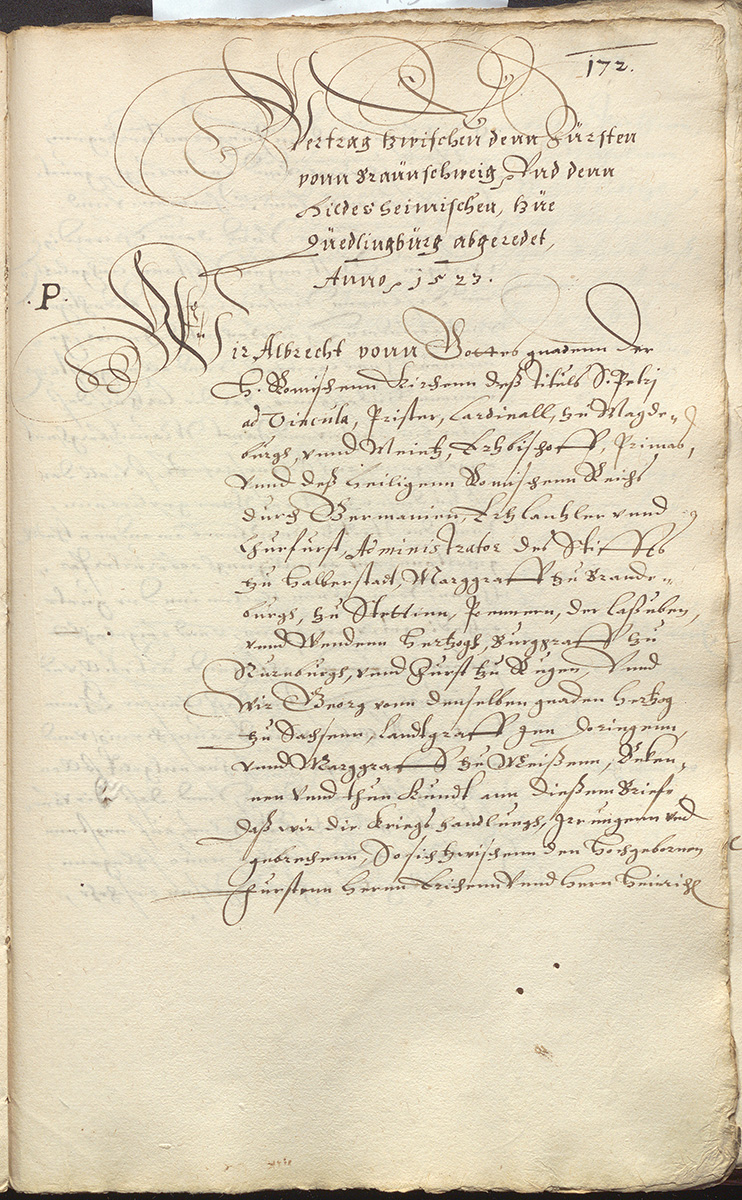 172.
Vertrag tzwischen denn Fürsten
vonn Braunschweig, Vnd denn
Hildesheimischen, tzue
Quedlingburg abgeredet,
Anno, 1523.
.P.
Wir Albrecht vonn Gottes gnadenn der
H. Romischenn Kirchenn deß Tituls S. Petrj
ad Vincula, Prister, Cardinall, zu Magde-
burgh, vnnd Meintz, Ertzbischoff, Primas,
Vnnd deß heiligenn Romischenn Reichs
durch Germanien, Ertzcantzler vnnd
Churfurst, Administrator des Stiffts
zu Halberstadt, Marggraff zu Brande-
burgh, zu Stettinn, Pommern, der Caßuben,
vnnd Wendenn Hertzogh, Burggraff zu
Nurnburgh, vnnd Furst zu Rugen, Vnnd
Wir Georg vonn denselben gnaden Hertzog
zu Sachsenn, Landtgraff Inn Doringenn,
vnnd Marggraff zu Meißenn, Beken-
nen Vnnd thun Kundt ann dießem Briefe,
Daß wir die Kriegshandlungh, Irrungenn vnd
gebrechenn, So sich tzwischenn den Hochgebornen
Furstenn Herrn Erichenn Vnnd Hern Heinrich